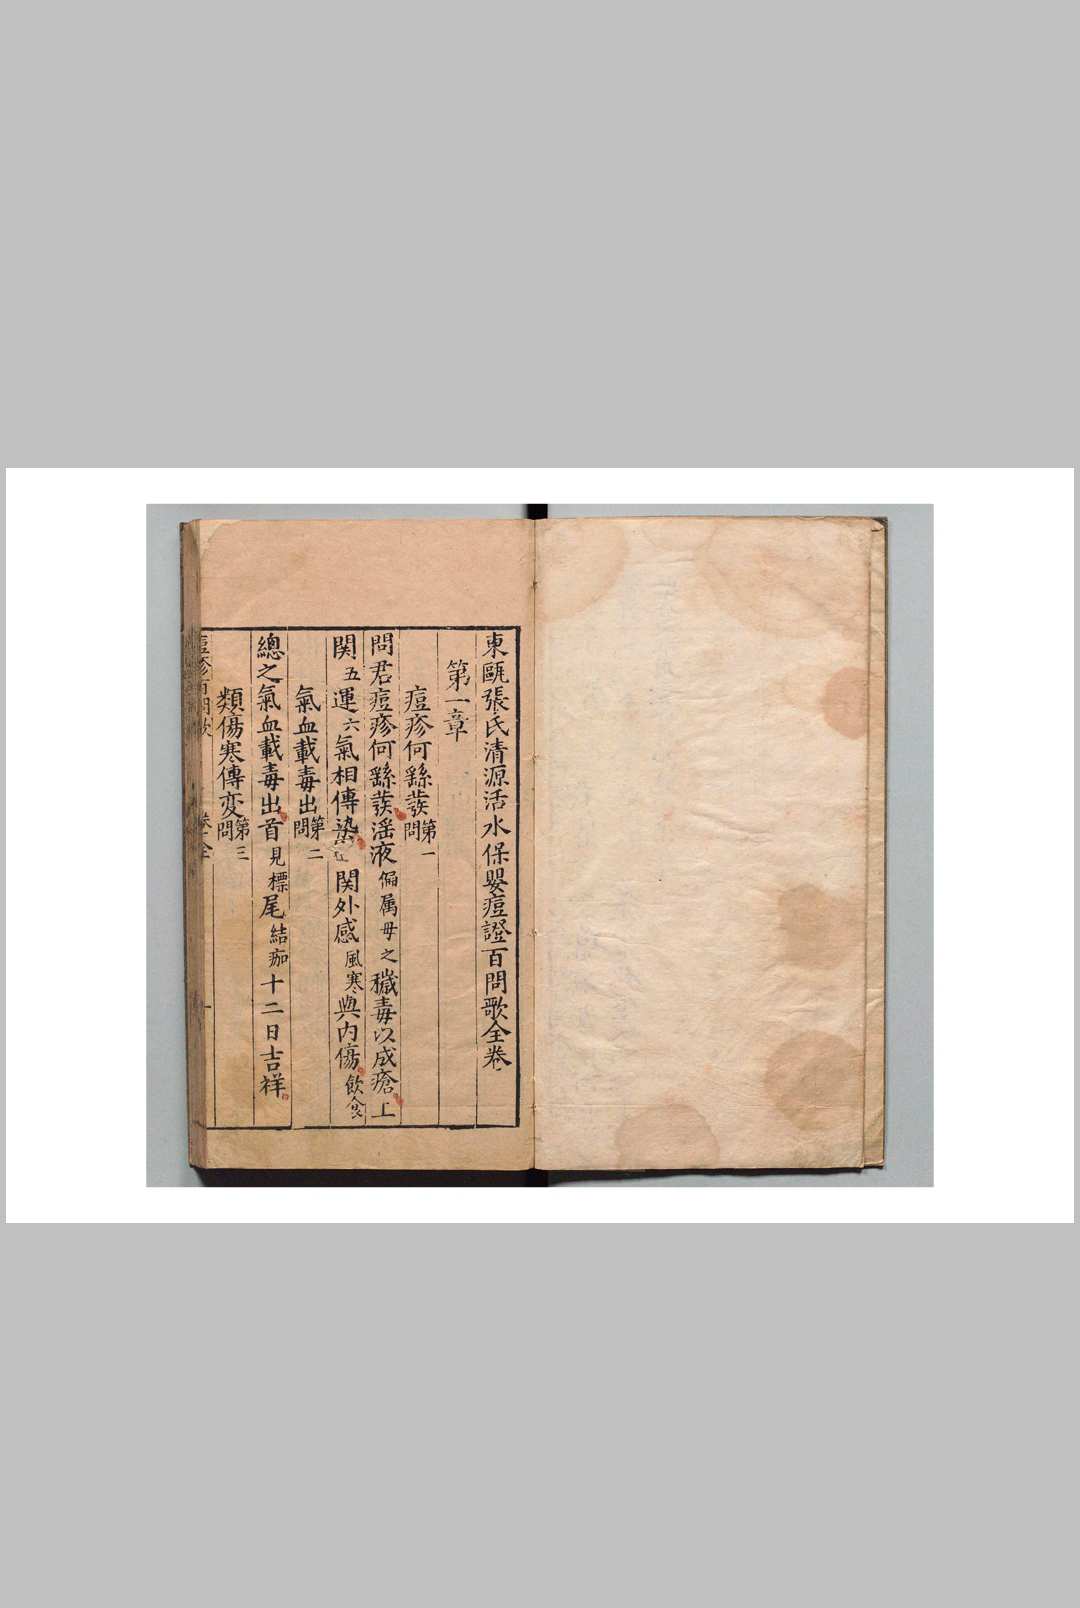 東甌張氏清源活水保嬰痘證百問歌全卷
第一章
痘疹何繇發第一問
問君痘疹何繇發淫液偏属母之穢毒以成瘡上
関五運六氣相傳染関外感風寒與内傷飲食
氣血載毒出第二問
總之氣血載毒出首見標尾結痂十二日吉祥
類傷寒傳变第三問
痘疹百問歌 卷之全 一